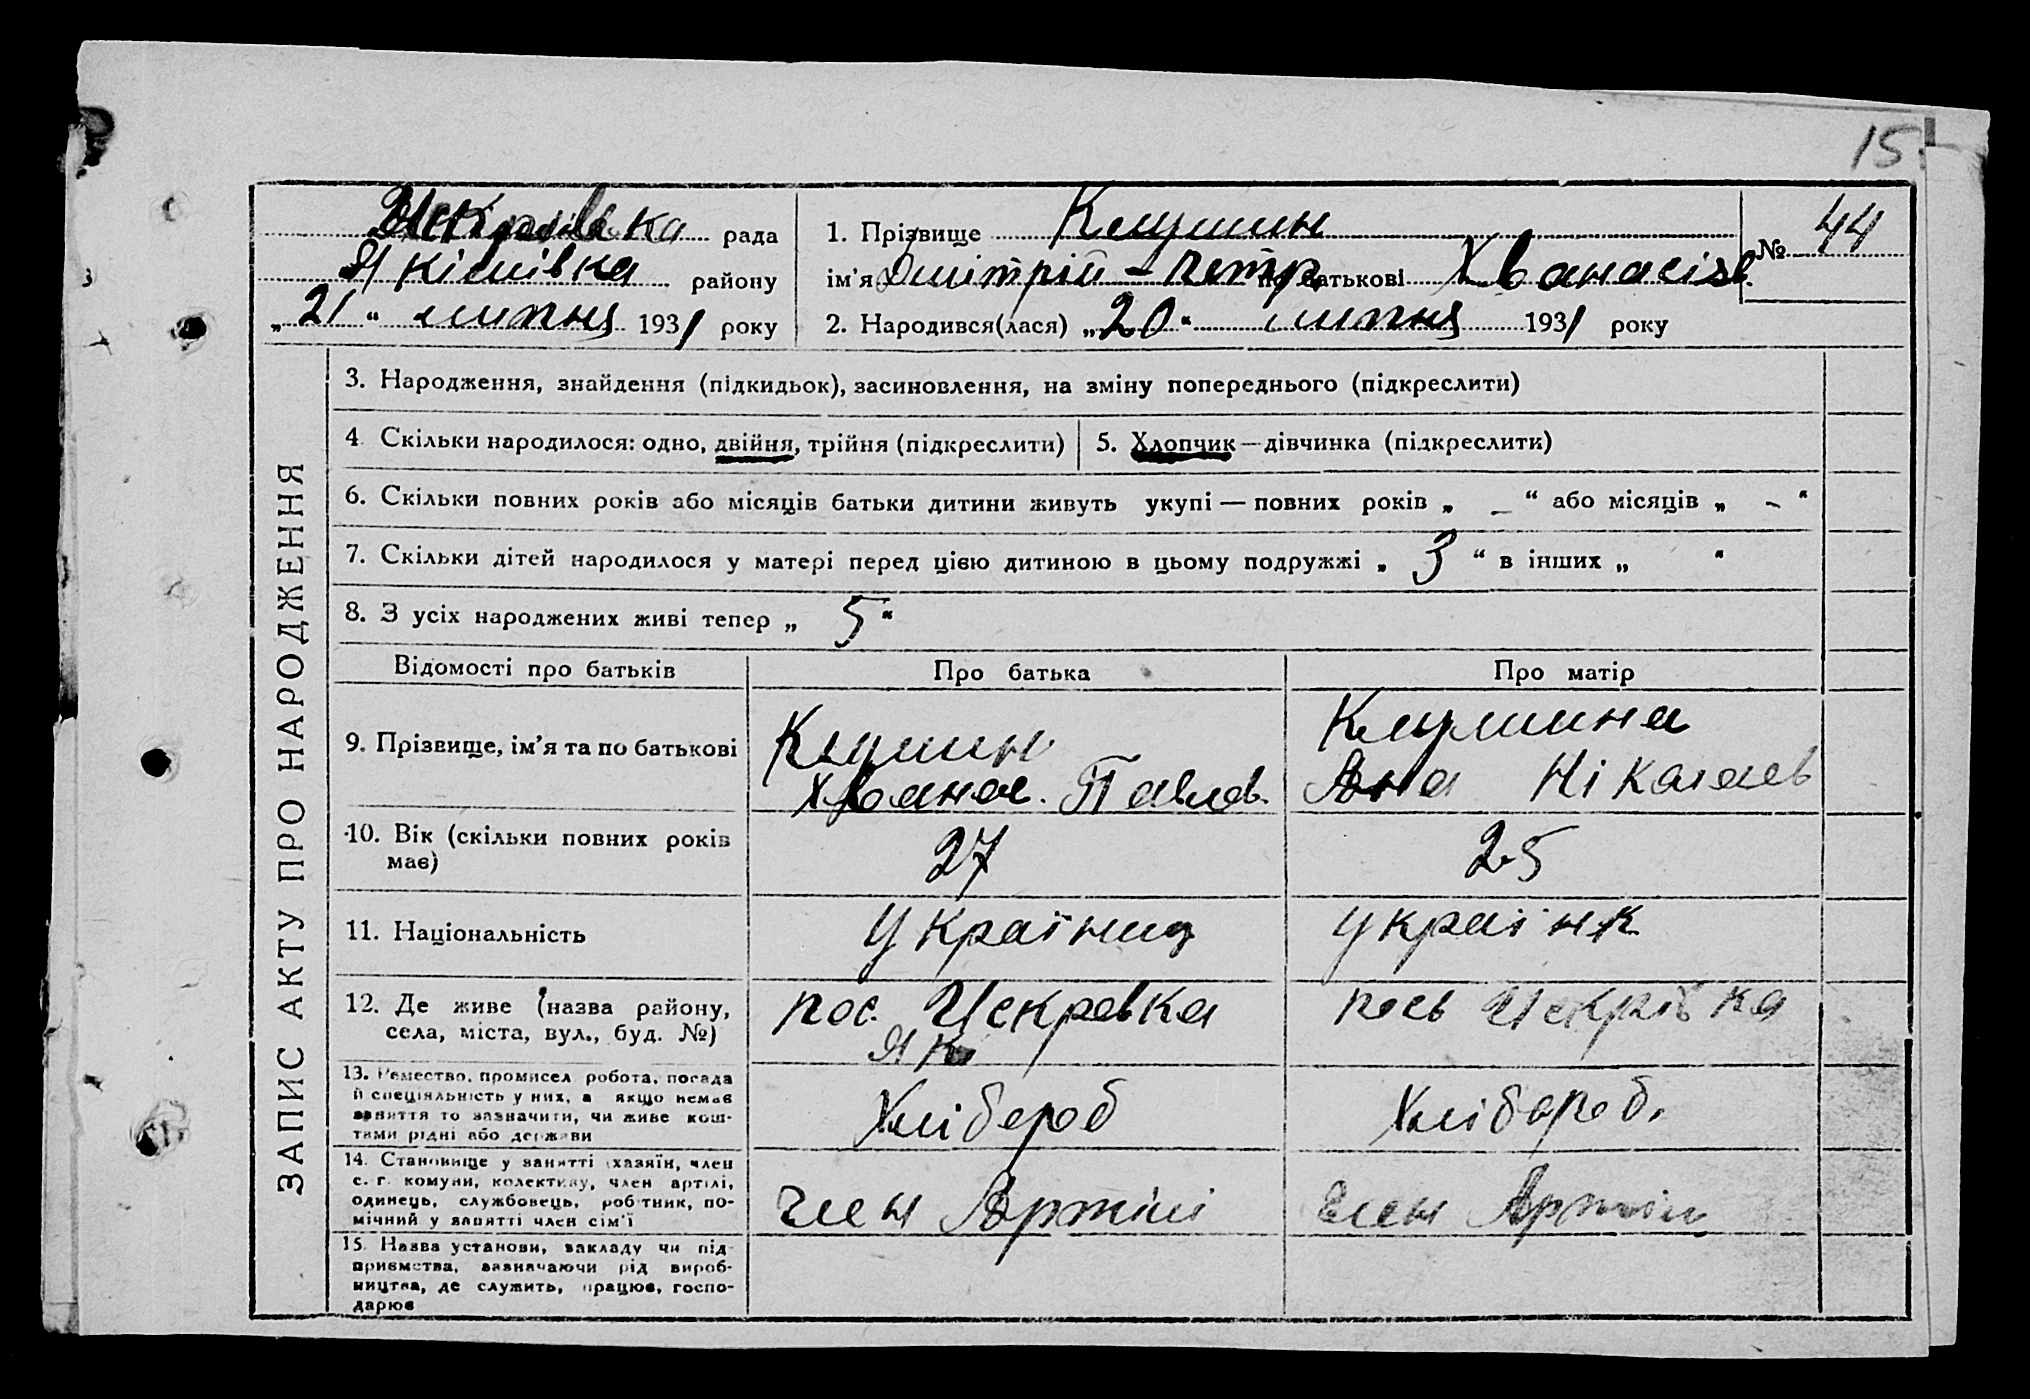 15.
Искрівка рада
Якімівка району
„21“ липня 1931 року
1. Прізвище Клушин
ім'я Дмітрій - Петр по батькові Хванасіев
№ 44
2. Народився(лася) „20“ липня 1931 року
ЗАПИС АКТУ ПРО НАРОДЖЕННЯ
3. Народження, знайдення (підкидьок), засиновлення, на зміну попереднього (підкреслити)
4. Скільки народилося: одно, двійня, трійня (підкреслити) 5. Хлопчик—дівчинка (підкреслити)
6. Скільки повних років або місяців батьки дитини живуть укупі — повних років „ – “ або місяців „ – “
7. Скільки дітей народилося у матері перед цією дитиною в цьому подружжі „ 3 “ в інших „ “
8. З усіх народжених живі тепер „ 5 “
Відомості про батьків Про батька Про матір
9. Прізвище, ім'я та по батькові
Клушин
Хванас. Павлов.
Клушина
Яна Ніколаев
10. Вік (скільки повних років
має)
27 25
11. Національність Українец українк
12. Де живе (назва району,
села, міста, вул., буд. №)
пос. Искревка
Як
пось Искрівка
13. Ремество, промисел робота, посада
й спеціяльність у них, а якщо немає
заняття то зазначити, чи живе кош-
тами рідні або держави
Хлібероб Хлібороб.
14. Становище у занятті (хазяїн, член
с. г. комуни, колективу, член артілі,
одинець, службовець, робітник, по-
мічний у занятті член сім'ї
член Артілі член Артіли
15. Назва установи, закладу чи під-
приємства, зазначаючи рід вироб-
ництва, де служить, працює, госпо-
дарює